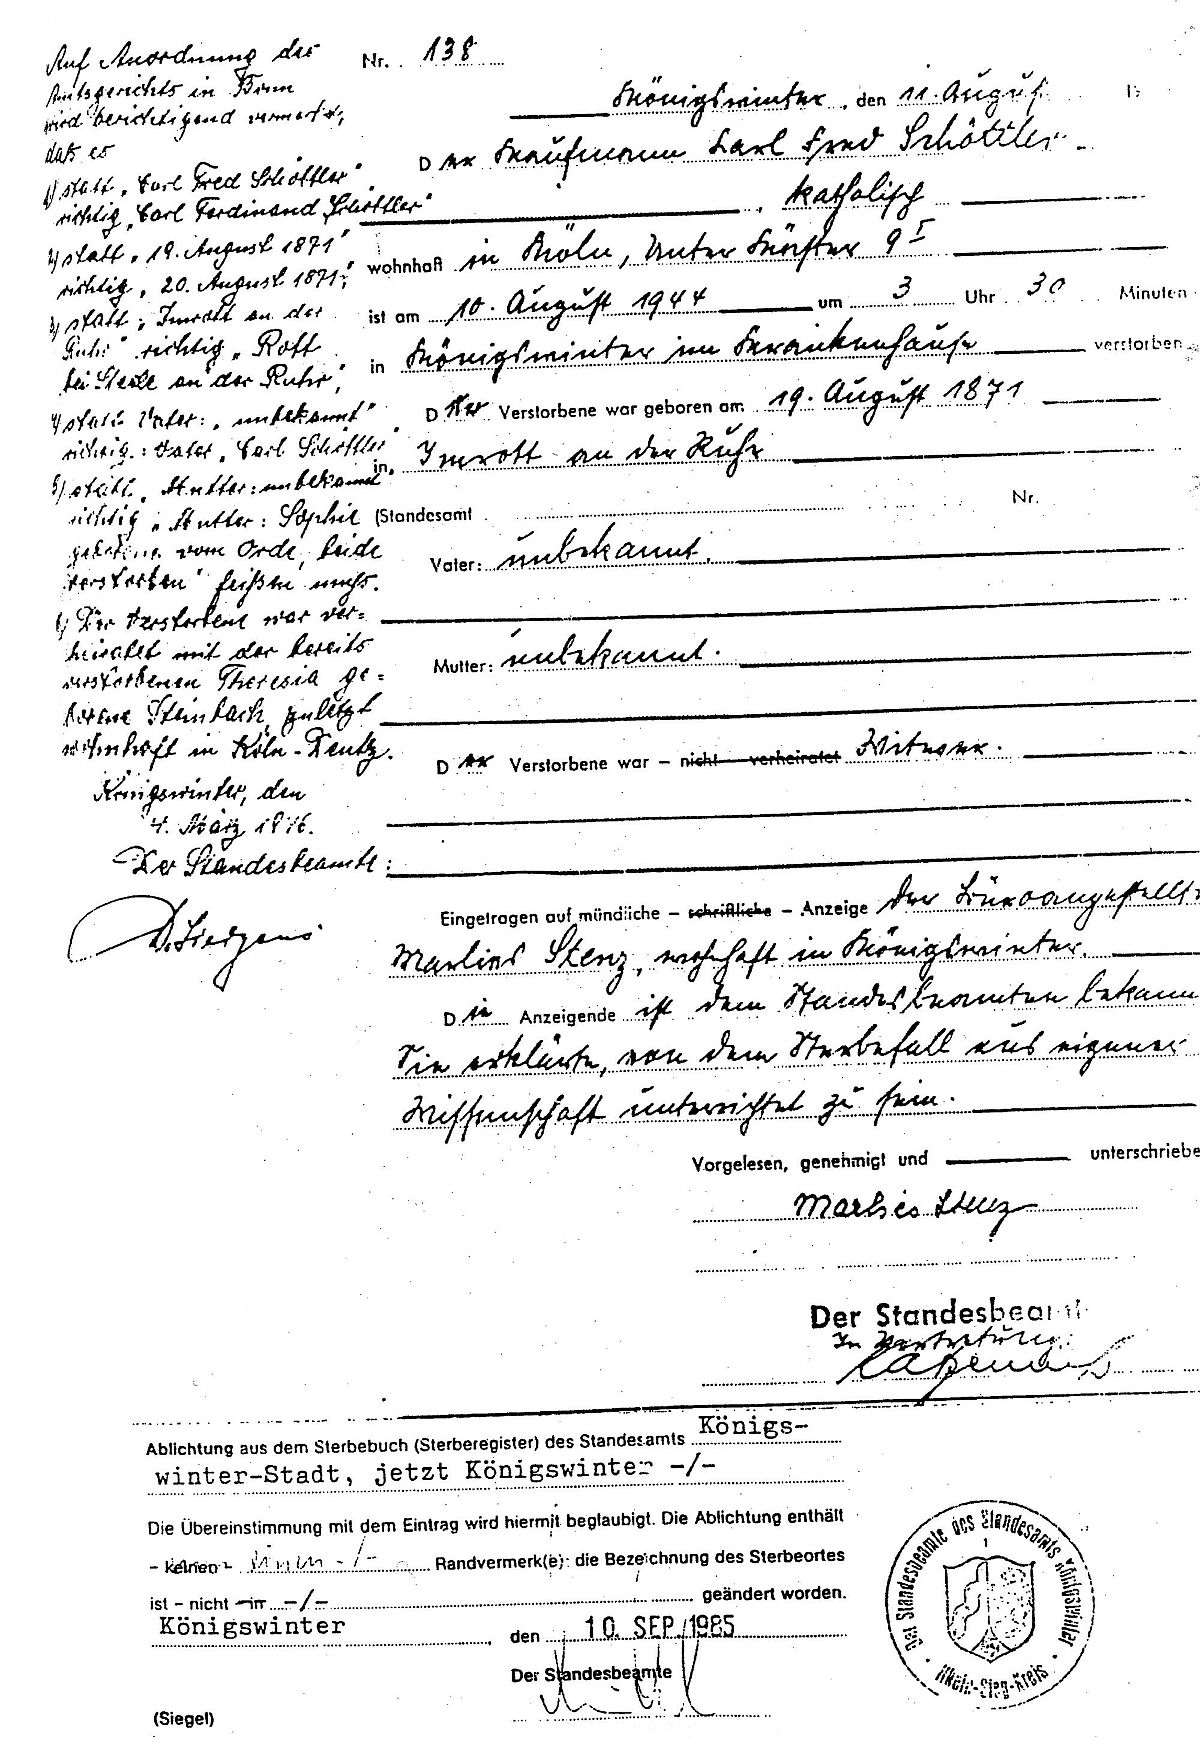 Auf Anordnung des
Amtsgerichts in Bonn
wird berichtigend vermerkt,
daß es
1) statt „Carl Fred Schöttler"
richtig „Carl Ferdinand Schöttler"
2) statt „19. August 1871"
richtig „20. August 1871",
3) statt „Imrott an der
Ruhr" richtig „Rott
bei Steele an der Ruhr",
4) statt Vater: „unbekannt"
richtig: Vater „Carl Schöttler
5) statt „Mutter: unbekannt"
richtig „Mutter: Sophie
geborene vom Orde, beide
verstorben" heißen muß.
6) Der Verstorbene war ver=
heiratet mit der bereits
verstorbenen Theresia ge=
borene Steinbach, zuletzt
wohnhaft in Köln-Deutz.
Königswinter, den
4. März
Der Standesbeamte:
Nr. 138
Königswinter, den 11. August
Der Kaufmann Carl Fred Schöttler
katholisch
wohnhaft in Köln, Unter Käster 9 I
ist am 10. August 1944 um 3 Uhr 30 Minuten
in Königswinter im Krankenhause verstorben
Der Verstorbene war geboren am 19. August 1871
in Imrott an der Ruhr
(Standesamt Nr.
Vater: unbekannt.
Mutter: unbekannt.
Der Verstorbene war – nicht – verheiratet Witwer.
Eingetragen auf mündliche – schriftliche – Anzeige der Büroangestellte
Marlies Stenz, wohnhaft in Königswinter.
Die Anzeigende ist dem Standesbeamten bekann
Sie erklärte, von dem Sterbefall aus eigener
Wissenschaft unterrichtet zu sein.
Vorgelesen, genehmigt und unterschriebe
Marlies Stenz
Der Standesbeamt
In Vertretung:
Ablichtung aus dem Sterbebuch (Sterberegister) des Standesamts Königs-
winter-Stadt, jetzt Königswinter -/-
Die Übereinstimmung mit dem Eintrag wird hiermit beglaubigt. Die Ablichtung enthält
– keinen – einen -/- Randvermerk(e): die Bezeichnung des Sterbeortes
ist – nicht – in -/- geändert worden.
Königswinter, den 10. SEP. 1985
Der Standesbeamte
(Siegel)
Der Standesbeamte des Standesamts Königswinter
1
Rhein-Sieg-Kreis